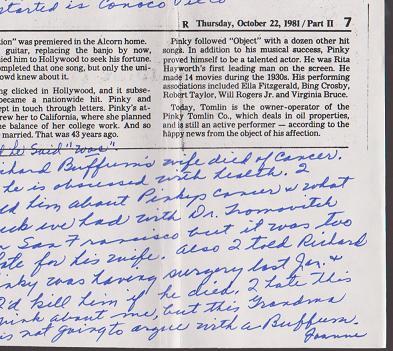 started is Conoco
R Thursday, October 22, 1981 / Part II 7
ion" was premiered in the Alcorn home.
guitar, replacing the banjo by now,
ied him to Hollywood to seek his fortune.
ompleted that one song, but only the uni-
owd knew about it.
ng clicked in Hollywood, and it subse-
became a nationwide hit. Pinky and
ept in touch through letters. Pinky's at-
rew her to California, where she planned
he balance of her college work. And so
married. That was 43 years ago.
Pinky followed "Object" with a dozen other hit
songs. In addition to his musical success, Pinky
proved himself to be a talented actor. He was Rita
Hayworth's first leading man on the screen. He
made 14 movies during the 1930s. His performing
associates included Ella Fitzgerald, Bing Crosby,
Robert Taylor, Will Rogers Jr. and Virginia Bruce.
Today, Tomlin is the owner-operator of the
Pinky Tomlin Co., which deals in oil properties,
and is still an active performer — according to the
happy news from the object of his affection.
he said "was"
chard Buffum's wife died of cancer.
he is obsessed with health. I
ed him about Pinkys cancer & what
uck we had with Dr. Tromovitch
San Francisco but it was too
ate for his wife. Also I told Richard
inky was having surgery last Jan. &
I'd kill him if he died. I hate this
hink about me, but this Grandma
is not going to argue with a Buffum.
Joanne